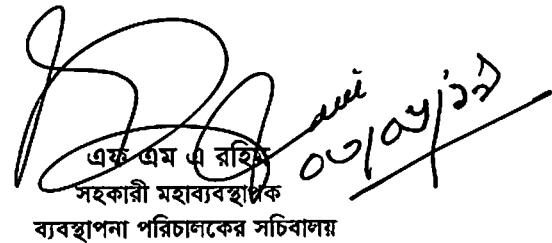 ০৩/০৫/১৯
এফ এম এ রহিম
সহকারী মহাব্যবস্থাপক
ব্যবস্থাপনা পরিচালকের সচিবালয়